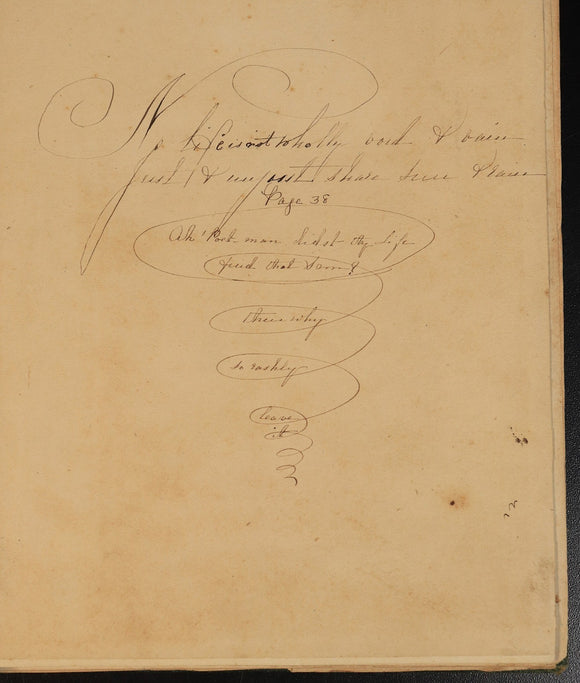 No life is not wholly void & vain
Just & unjust share sun & rain
Page 38
Ah! Poet man didst thy life
find that so
then why
so rashly
leave
it